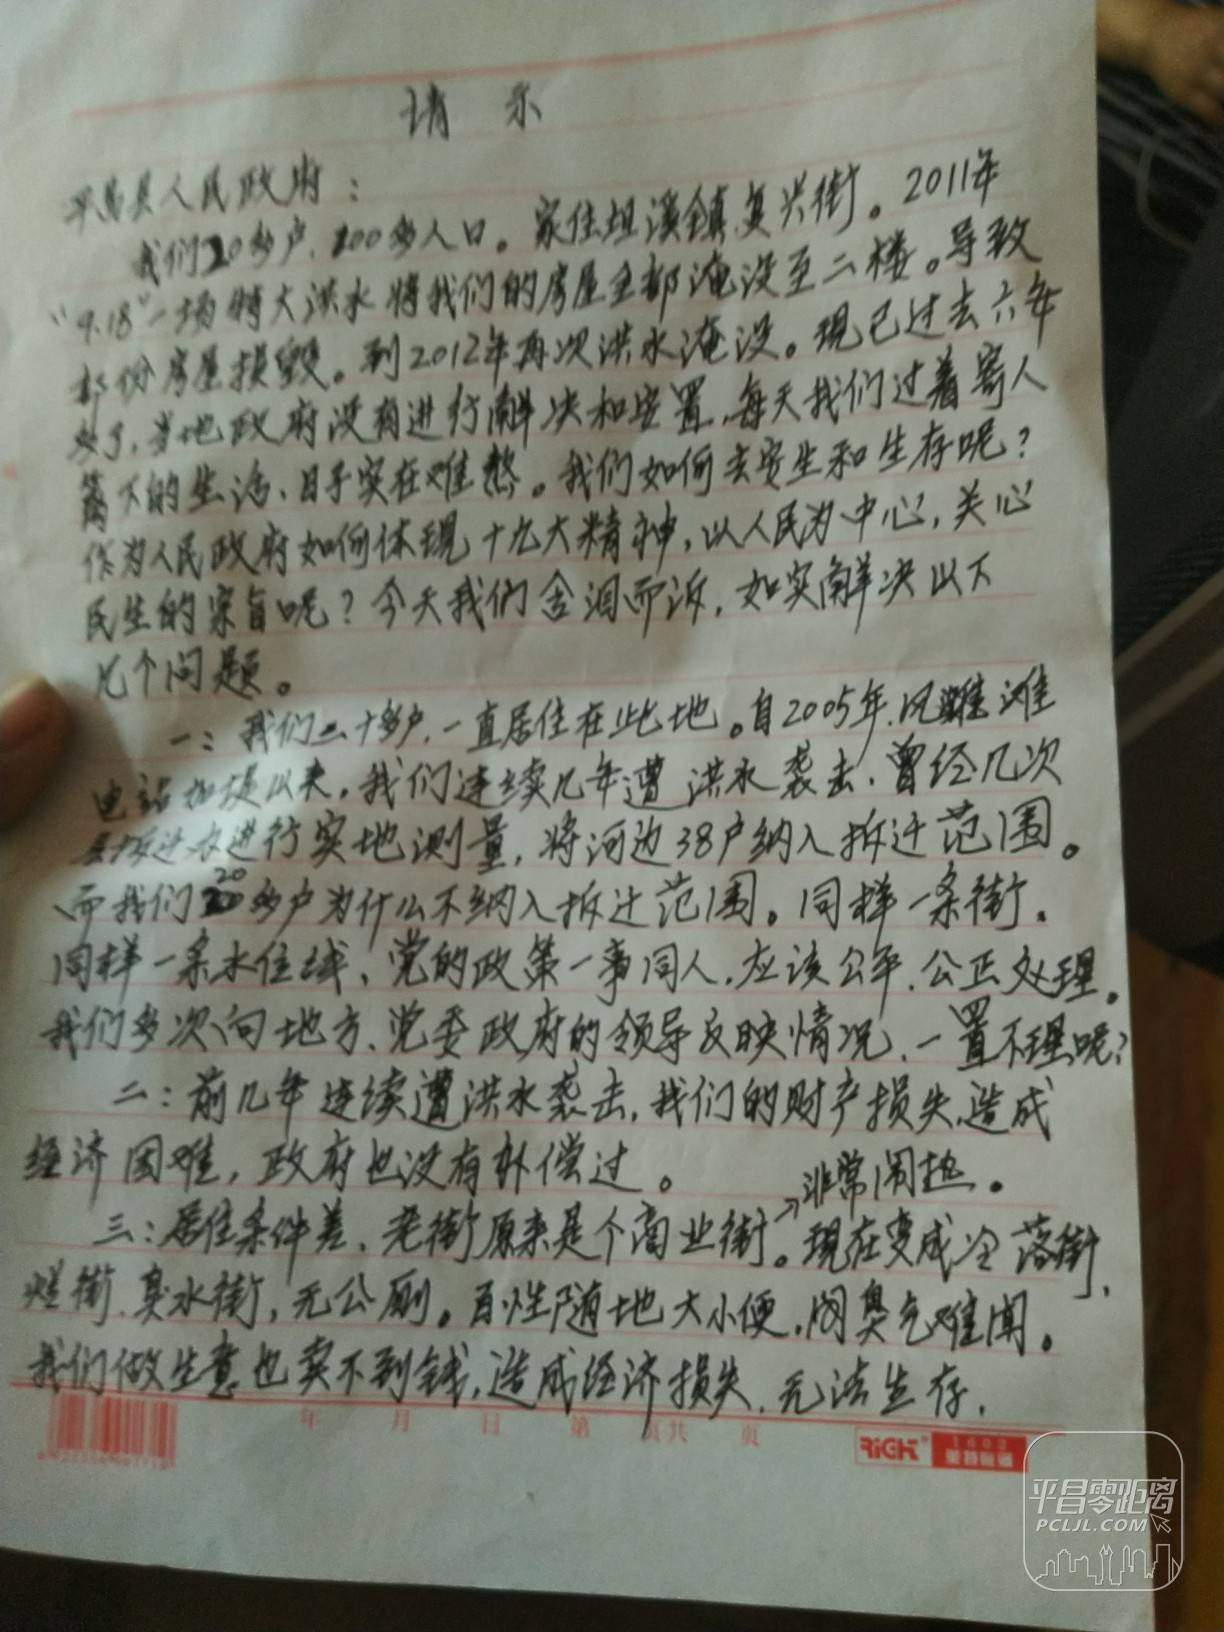 请 示
平昌县人民政府：
我们20多户、200多人口。家住坦溪镇复兴街。2011年
“9.18”一场特大洪水将我们的房屋全部淹没至二楼。导致
部份房屋损毁。到2012年再次洪水淹没。现已过去六年
多了，当地政府没有进行解决和安置，每天我们过着寄人
篱下的生活、日子实在难熬。我们如何去安生和生存呢？
作为人民政府如何体现十九大精神，以人民为中心，关心
民生的宗旨呢？今天我们含泪而诉，如实解决以下
几个问题。
一：我们二十多户，一直居住在此地。自2005年，风滩滩
电站 以来，我们连续几年遭洪水袭击，曾经几次
县拆迁办进行实地测量，将河边38户纳入拆迁范围。
而我们20多户为什么不纳入拆迁范围。同样一条街，
同样一条水位线、党的政策一事同人，应该公平、公正处理。
我们多次向地方、党委政府的领导反映情况，一置不理呢？
二：前几年连续遭洪水袭击，我们的财产损失，造成
经济困难，政府也没有补偿过。
非常闹热。
三：居住条件差、老街原来是个商业街。现在变成冷落街，
烂街、臭水街，无公厕。百性随地大小便，闷臭气难闻。
我们做生意也卖不到钱，造成经济损失，无法生存，
年 月 日 第 页共 页
RiCH
平昌零距离
PCLJL.COM